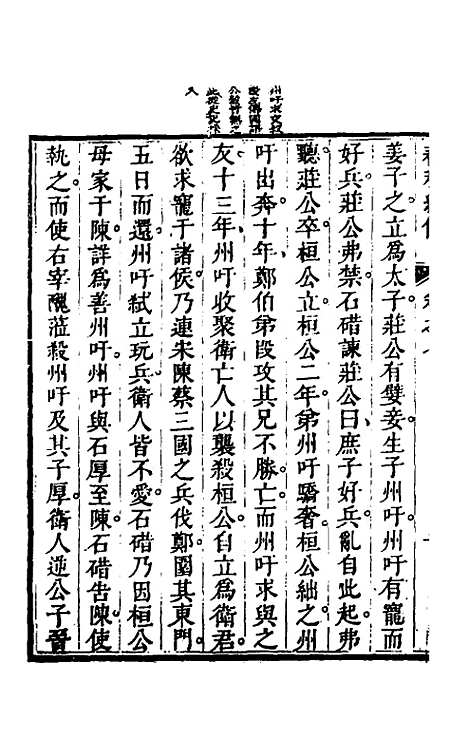 州吁求交叔
姜子之立為太子莊公有嬖妾生子州吁州吁有寵而
好兵莊公弗禁石碏諫莊公曰庶子好兵亂自此起弗
聽莊公卒桓公立桓公二年弟州吁驕奢桓公絀之州
吁出奔十年鄭伯弟段攻其兄不勝亡而州吁求與之
友十三年州吁收聚衛亡人以襲殺桓公自立為衛君
欲求寵于諸侯乃連宋陳蔡三國之兵伐鄭圍其東門
五日而還州吁弒立玩兵衛人皆不愛石碏乃因桓公
母家于陳詳為善州吁州吁與石厚至陳石碏告陳使
執之而使右宰醜蒞殺州吁及其子厚衛人逆公子晉